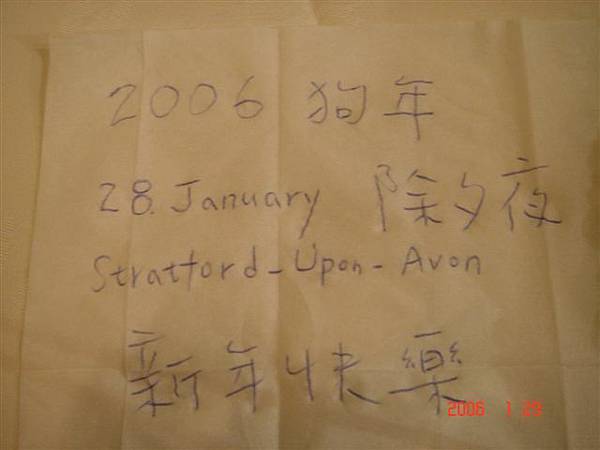 2006 狗年
28. January 除夕夜
Stratford-Upon-Avon
新年快樂
2006 1 29